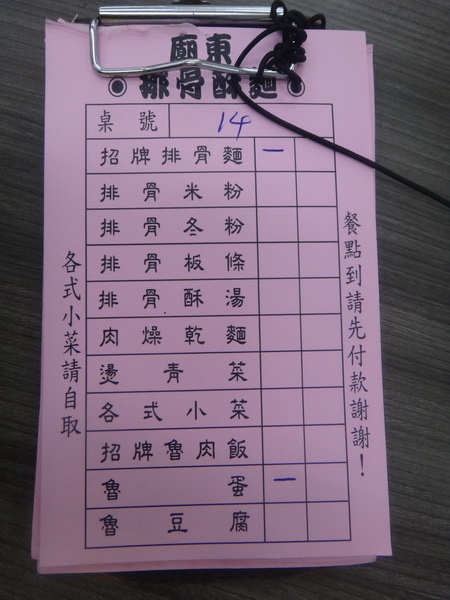 廟東
排骨酥麵
桌號 14
招牌排骨麵 一
排骨米粉
排骨冬粉
排骨板條
排骨酥湯
肉燥乾麵
燙青菜
各式小菜
招牌魯肉飯
魯蛋 一
魯豆腐
餐點到請先付款謝謝！
各式小菜請自取